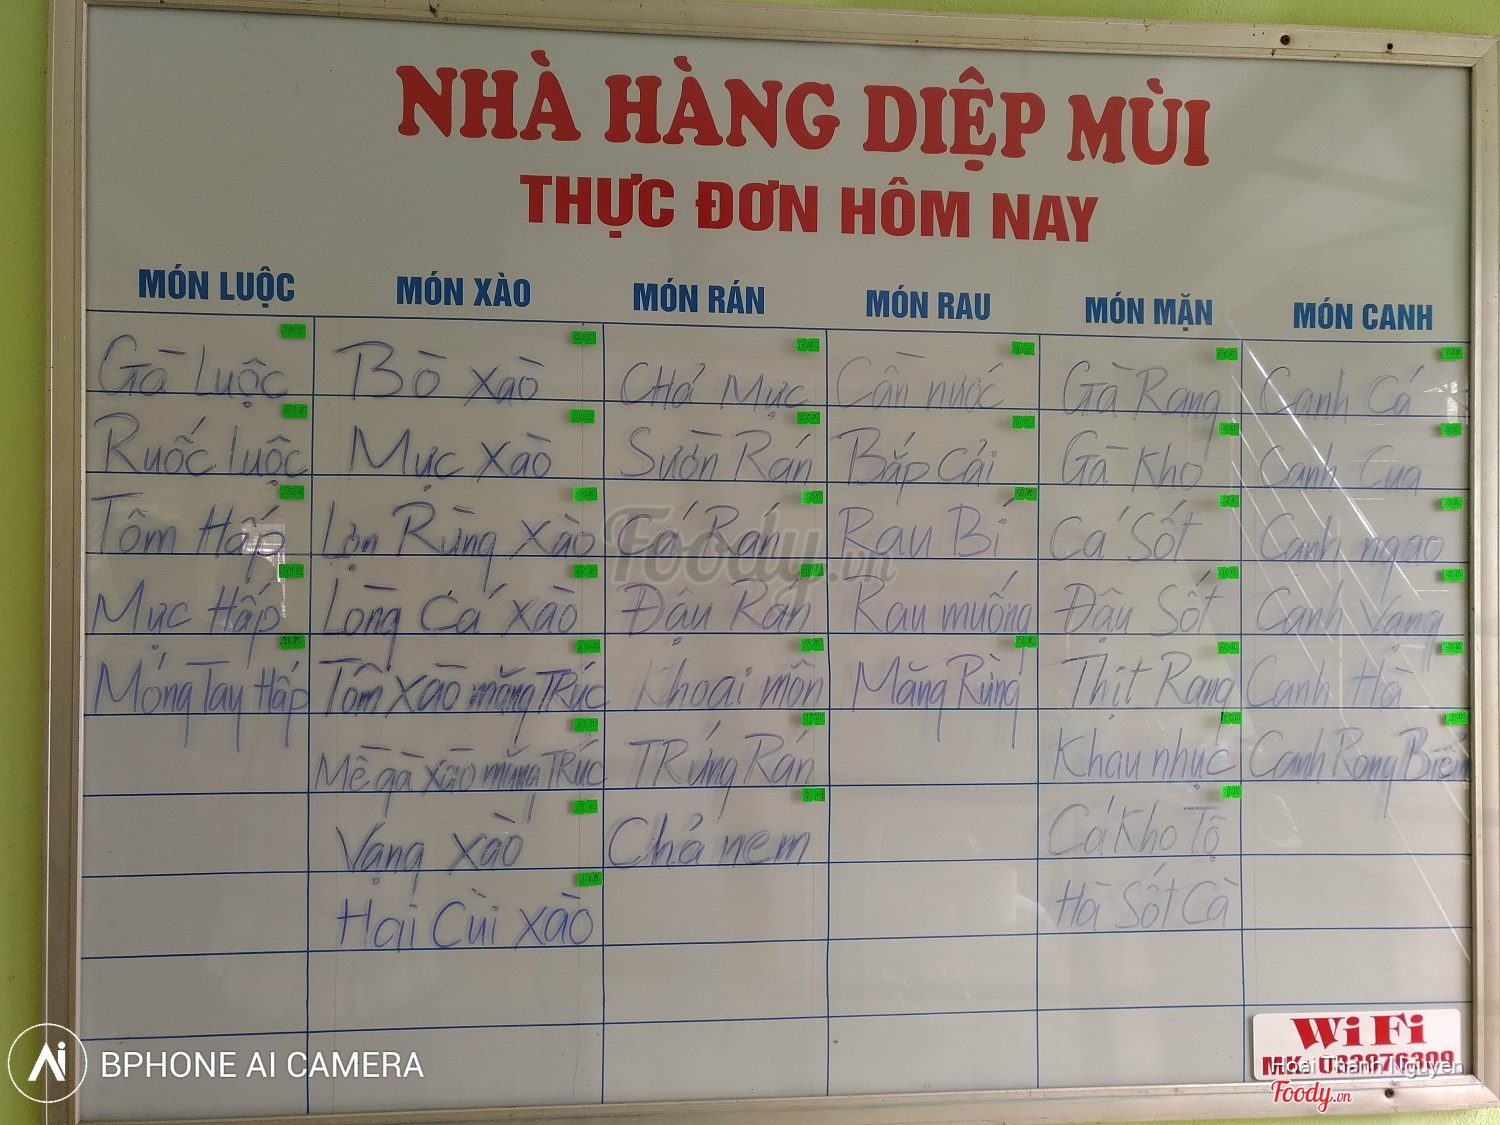 NHÀ HÀNG DIỆP MÙI
THỰC ĐƠN HÔM NAY
MÓN LUỘC
MÓN XÀO
MÓN RÁN
MÓN RAU
MÓN MẶN
MÓN CANH
Gà Luộc
Bò xào
Chả Mực
Cần nước
Gà Rang
Canh Cá
Ruốc luộc
Mực xào
Sườn Rán
Bắp Cải
Gà Kho
Canh Cua
Tôm Hấp
Lợn Rừng xào
Cá Rán
Rau Bí
Cá Sốt
Canh ngao
Mực Hấp
Lòng Cá xào
Đậu Rán
Rau muống
Đậu Sốt
Canh Vạng
Móng Tay Hấp
Tôm xào măng Trúc
Khoai môn
Măng Rừng
Thịt Rang
Canh Hà
Mề gà xào măng Trúc
Trứng Rán
Khau nhục
Canh Rong Biển
Vạng xào
Chả nem
Cá Kho Tộ
Hai Cùi xào
Hà Sốt Cà
WiFi
MK:
Hoai Thanh Nguyen
Foody.vn
Foody.vn
BPHONE AI CAMERA